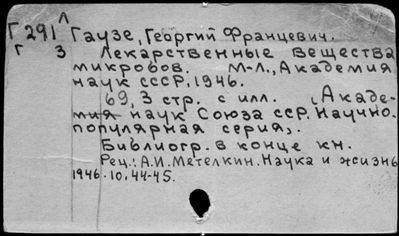 Г 291 Л Гаузе, Георгий Францевич.
Г 3 Лекарственные вещества
микробов. М-Л., Академия
наук СССР, 1946.
69, 3 стр. с илл. (Акаде-
мия наук Союза ССР. Научно-
популярная серия).
Библиогр. в конце кн.
Рец.: А.И. Метелкин. Наука и жизнь
1946. 10, 44-45.